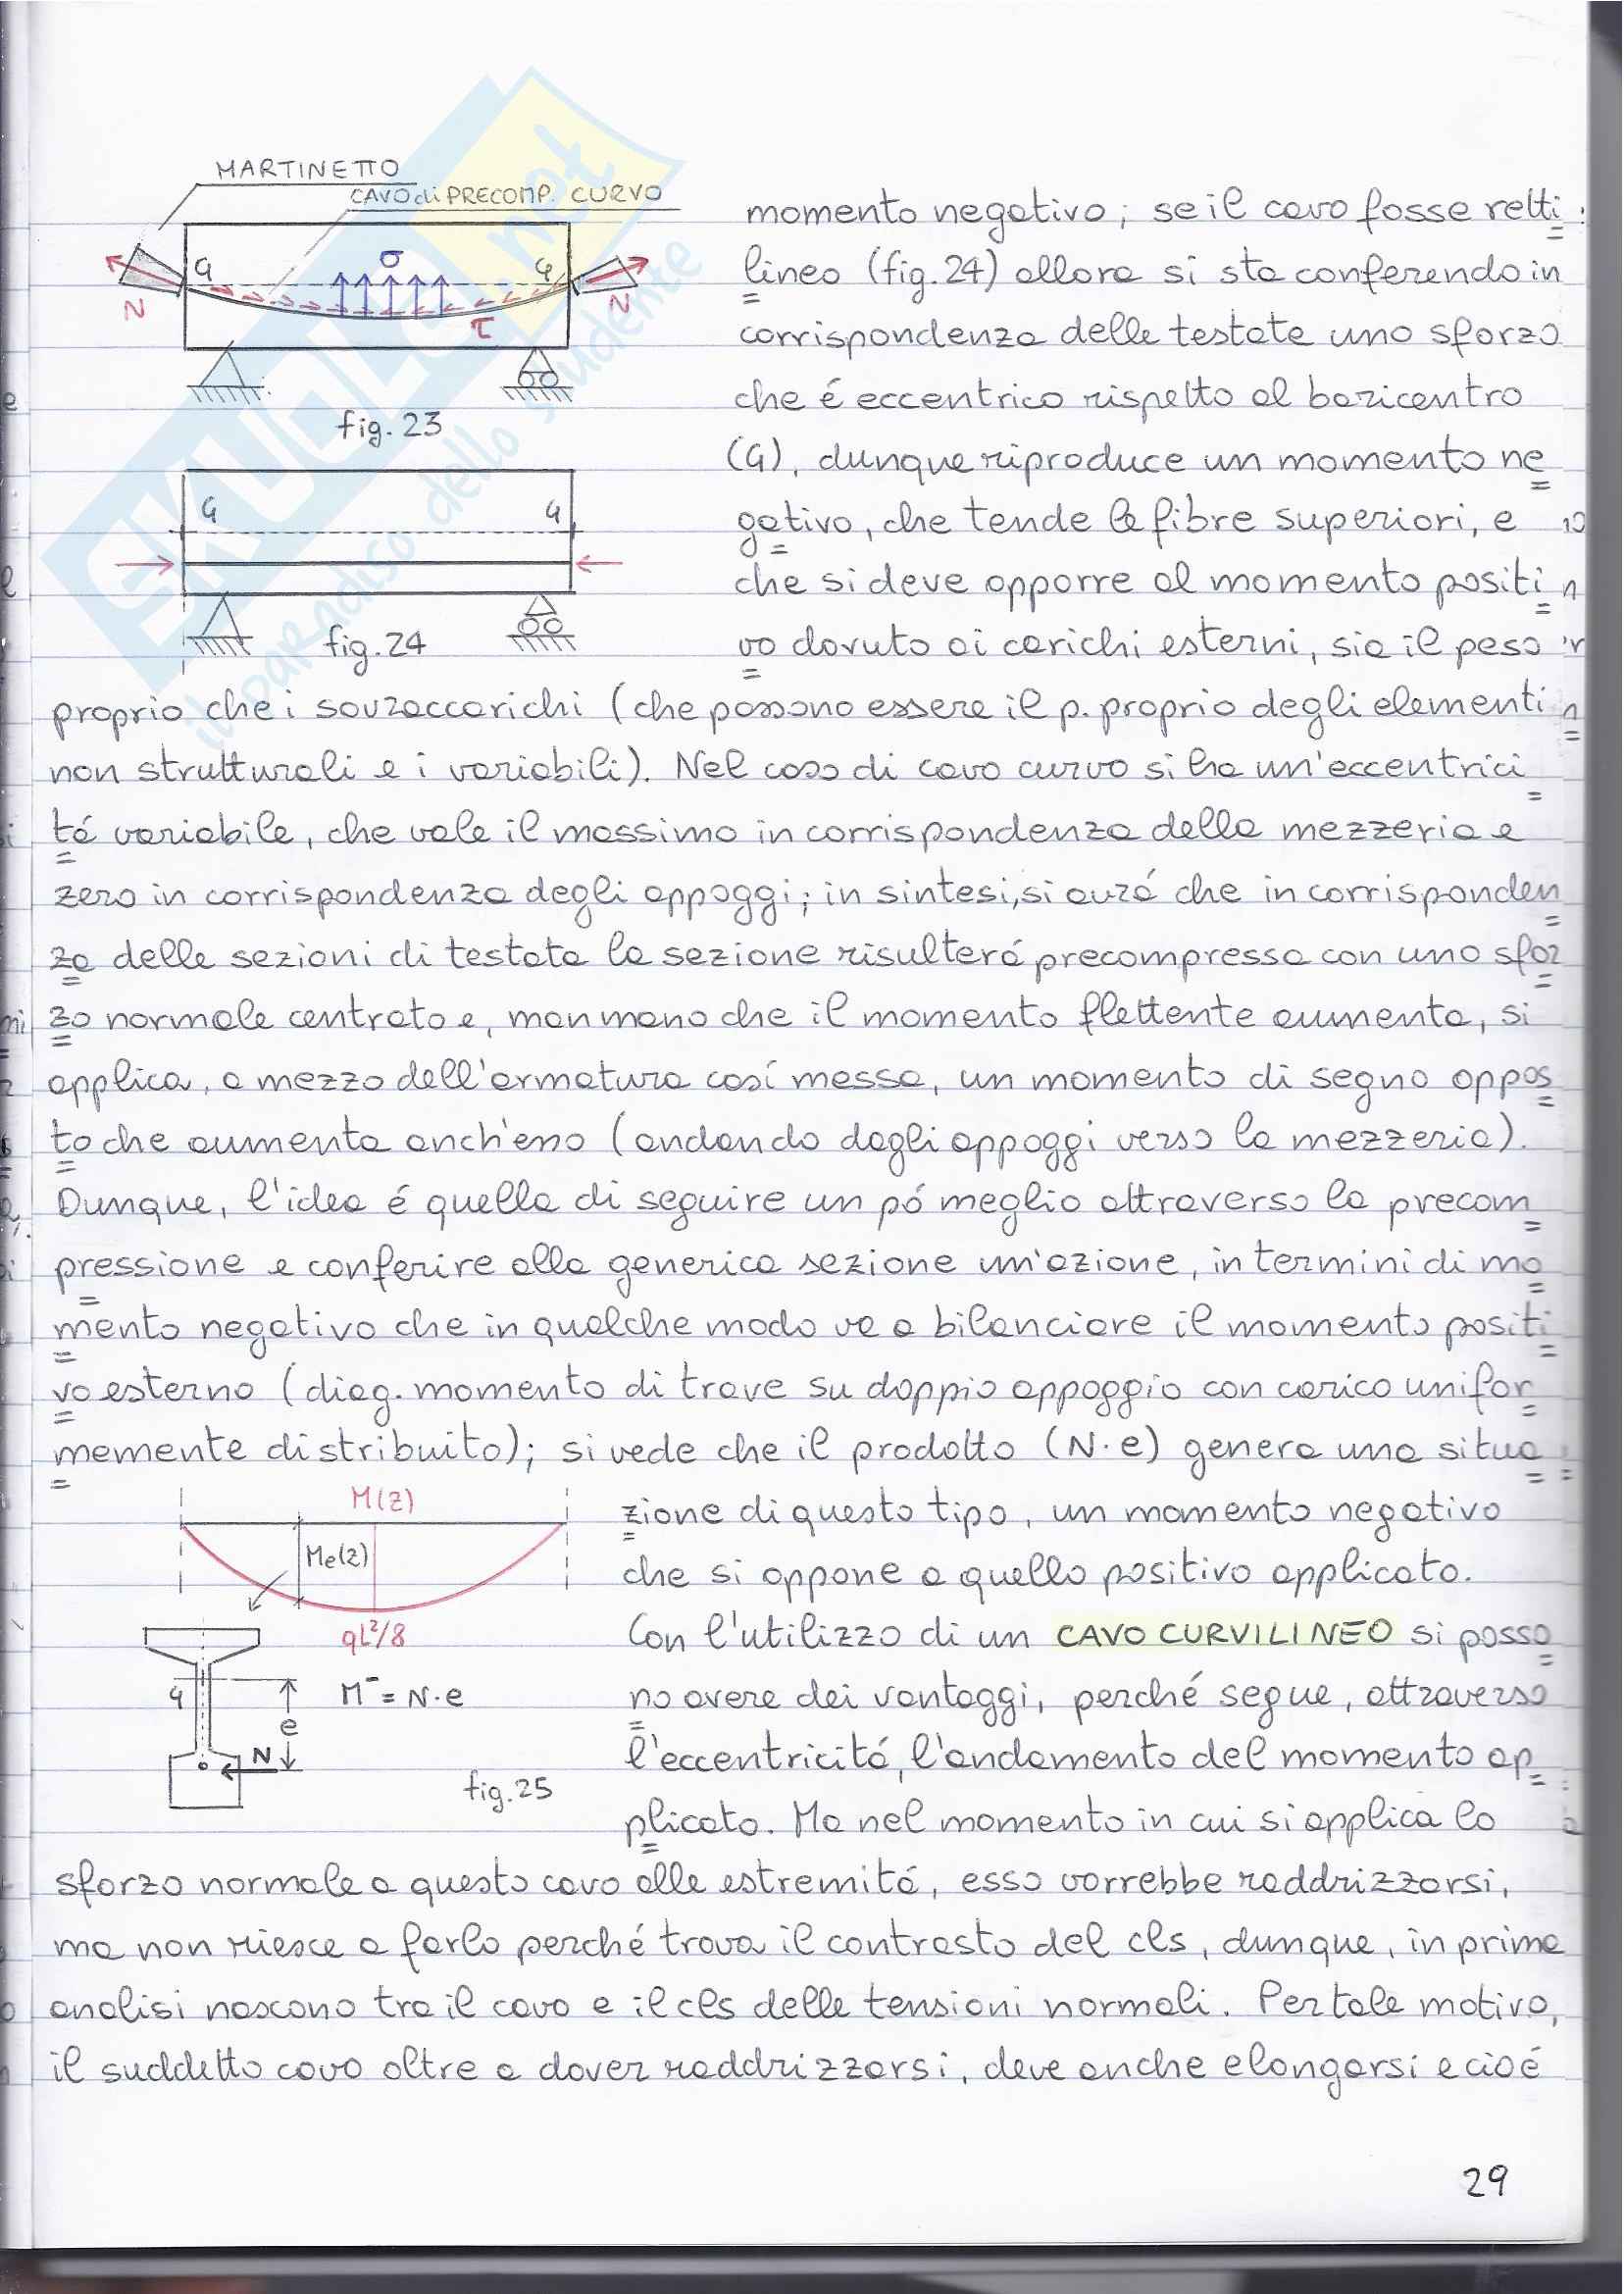 MARTINETTO
CAVO di PRECOMP. CURVO
G
σ
G
N
τ
N
fig. 23
G
G
fig. 24
momento negativo; se il cavo fosse retti
lineo (fig. 24) allora si sta conferendo in
corrispondenza delle testate uno sforzo
che é eccentrico rispetto al baricentro
(G), dunque riproduce un momento ne
gativo, che tende le fibre superiori, e
che si deve opporre al momento positi
vo dovuto ai carichi esterni, sia il peso
proprio che i sovraccarichi (che possono essere il p. proprio degli elementi
non strutturali e i variabili). Nel caso di cavo curvo si ha un'eccentrici
tá variabile, che vale il massimo in corrispondenza della mezzeria e
zero in corrispondenza degli appoggi; in sintesi, si avrá che in corrisponden
za delle sezioni di testata la sezione risulterá precompressa con uno sfor
zo normale centrato e, man mano che il momento flettente aumenta, si
applica, a mezzo dell'armatura cosí messa, un momento di segno oppos
to che aumenta anch'esso (andando dagli appoggi verso la mezzeria).
Dunque, l'idea é quella di seguire un pó meglio attraverso la precom
pressione e conferire alla generica sezione un'azione, in termini di mo
mento negativo che in qualche modo va a bilanciare il momento positi
vo esterno (diag. momento di trave su doppio appoggio con carico unifor
memente distribuito); si vede che il prodotto (N·e) genera una situa
M(z)
Me(z)
qL²/8
G
e
N
M⁻= N·e
fig. 25
zione di questo tipo, un momento negativo
che si oppone a quello positivo applicato.
Con l'utilizzo di un CAVO CURVILINEO si posso
no avere dei vantaggi, perché segue, attraverso
l'eccentricitá, l'andamento del momento ap
plicato. Ma nel momento in cui si applica lo
sforzo normale a questo cavo alle estremitá, esso vorrebbe raddrizzarsi,
ma non riesce a farlo perché trova il contrasto del cls, dunque, in prima
analisi nascono tra il cavo e il cls delle tensioni normali. Per tale motivo,
il suddetto cavo oltre a dover raddrizzarsi, deve anche elongarsi e cioé
29